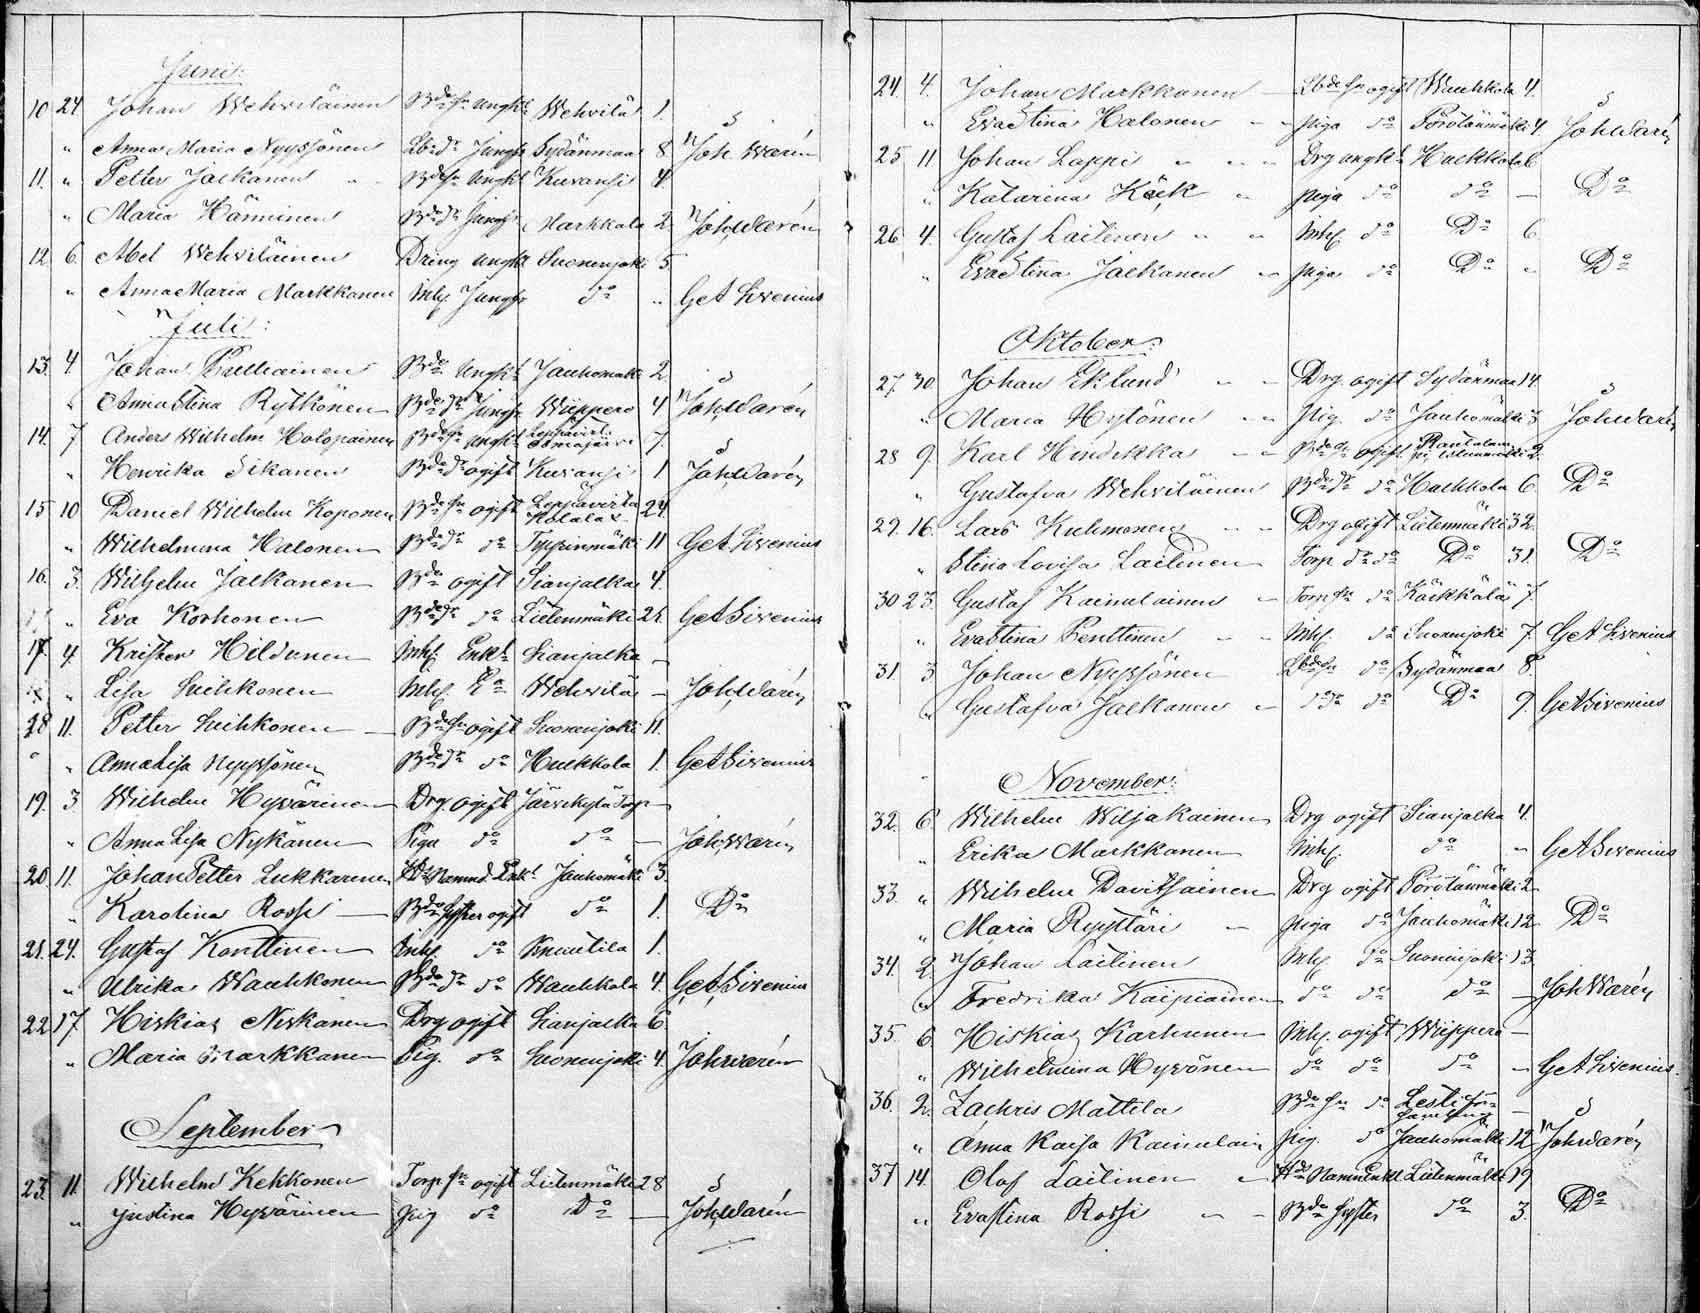 Juni:
10 24 Johan Wehviläinen Bde sn ungkl Wehvilä 1.
" Anna Maria Nyyssönen Lbdr Jungfr Sydänmaa 8 Joh Warén
11. " Petter Jalkanen Bdesn Ungkl Kuvansi 4.
" Maria Hänninen Bdedr Jungfr Markkala 2 Joh Warén
12. 6. Abel Wehviläinen Dräng ungkl Suonenjoki 5
" Anna Maria Markkanen Inhs Jungfr do " G A Sivenius
Juli:
13. 4 Johan Bde Ungkl Jauhomäki 2
" Anna Stina Rytkönen Bdedr Jungfr Wiippero 4 Joh Warén
14. 7 Anders Wilhelm Holopainen Bdesn ungkl Leppävirta 7.
" Henrika Sikanen Bdedr ogift Kuvansi 1 Joh Warén
15 10 Daniel Wilhelm Koponen Bde sn ogift Leppävirta Kotalax 24.
" Wilhelmina Halonen Bdedr do Tyyrinmäki 11 G A Sivenius
16. 3. Wilhelm Jalkanen Bde ogift Sianjalka 4.
" Eva Korhonen Bdedr do Lietenmäki 21 G A Sivenius
17. 4 Krister Hildunen Inhs. Enkl Sianjalka –
" Lisa Suihkonen Inhs. Wehvilä – Joh Warén
18 11. Petter Suihkonen – Bdesn ogift Suonenjoki 11.
" Anna Lisa Nyyssönen Bdedr do Hulkkola 1. G A Sivenius
19. 3 Wilhelm Hyvärinen – Drg. ogift Järvikylä Torp –
" Anna Lisa Nykänen Piga do do – Joh Warén
20 11. Johan Petter Lukkarinen Enkl Jauhomäki 3.
" Karolina Rossi – Bde syster ogift do 1. Do
21. 24. Gustaf Konttinen Inhs do Knuutila 1.
" Ulrika Wauhkonen Bdedr do Wauhkola 4. G A Sivenius
22 17 Hiskias Niskanen Drg ogift Sianjalka 6
" Maria Markkanen Pig. do Suonenjoki 4. Joh Warén
September
23. 11. Wilhelm Kekkonen Torp sn ogift Lietenmäki 28
" Justina Hyvärinen Pig do Do – Joh Warén
24. 4. Johan Markkanen – Lbdesn ogift Wauhkola 4.
" Eva Stina Halonen " " piga do Pörölänmäki 4. Joh Warén
25 11 Johan Lappi " " " Drg ungkl Hulkkola 6
" Katarina Käck " piga do do – Do
26. 4. Gustaf Laitinen " " Inhs do Do 6.
" Eva Stina Jalkanen " piga do Do " Do
Oktober:
27. 30. Johan Eklund " " Drg. ogift Sydänmaa 14.
" Maria Hytönen " " Pig. do Jauhomäki 3 Joh Warén
28 9. Karl Hindikka " " ogift 2.
" Gustafva Wehviläinen Bdedr do Hulkkola 6. Do
29. 16. Lars Kuhmonen " " Drg ogift Lietenmäki 32.
" Stina Lovisa Laitinen Torp dr do Do 31. Do
30 23. Gustaf Kainulainen " Torp sn do Käckkälä 7.
" Eva Stina Penttinen " " Inhs. do Suonenjoki 7. G A Sivenius
31. 3 Johan Nyyssönen Lbdesn do Sydänmaa 8.
" Gustafva Jalkanen " do do Do 9. G A Sivenius
November:
32. 6 Wilhelm Wiljakainen Drg ogift Sianjalka 4.
" Erika Markkanen Inhs. do " G A Sivenius
33. " Wilhelm Davitsainen Drg ogift Pörölänmäki 2
" Maria Ryyttäri " piga do Jauhomäki 12. Do
34. 2. Johan Laitinen Inhs do Suonenjoki 13.
" Fredrika Kaipiainen do do do – Joh Warén
35. 6 Hiskias Karhunen Inhs. ogift Wiippero –
" Wilhelmina Hyvönen do do do – G A Sivenius.
36. 2. Zachris Mattila Bde sn do Lesti församling –
" Anna Kaisa Kainulain Pig. do Jauhomäki 12 Joh Warén
37 14. Olof Laitinen " Enkl Lietenmäki 19
" Eva Stina Rossi " " Bde syster do 3. Do